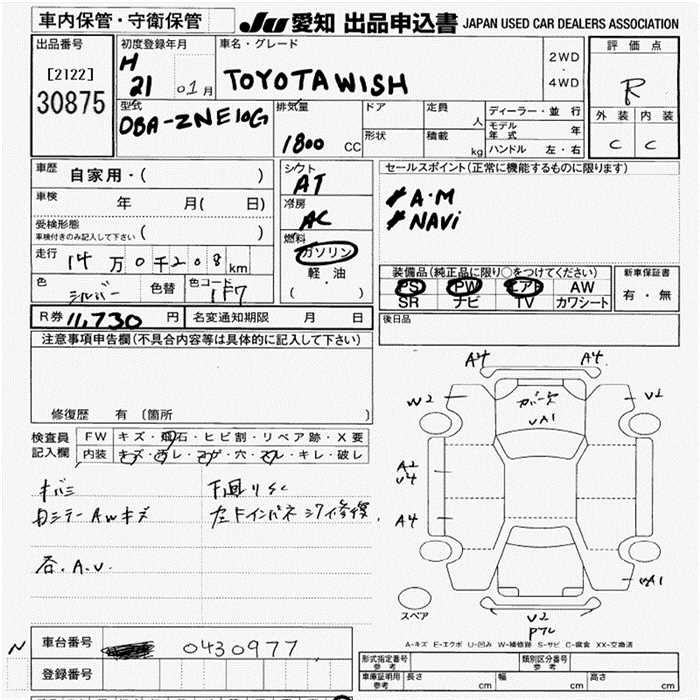 車内保管・守衛保管
JU 愛知 出品申込書 JAPAN USED CAR DEALERS ASSOCIATION
出品番号
[2122]
30875
初度登録年月
H 21 01月
車名・グレード
TOYOTA WISH
2WD
・
4WD
評価点
R
外装 内装
C C
型式
DBA-ZNE10G
排気量
1800 CC
ドア
定員 人
形状
積載 kg
ディーラー・並行
モデル年式 年
ハンドル 左・右
車歴 自家用・( )
車検 年 月( 日)
受検形態
車検付きのみ記入して下さい ( )
走行 14万0千208km
色 シルバー 色替
色コード 1F7
シフト
AT
冷房
AC
燃料
ガソリン
軽油
( )
セールスポイント(正常に機能するものに限ります)
A・M
NAVi
装備品(純正品に限り○をつけてください)
PS PW エアB AW
SR ナビ TV カワシート
新車保証書
有・無
R券 11,730円
名変通知期限 月 日
後日品
注意事項申告欄(不具合内容等は具体的に記入して下さい)
修復歴 有 〔箇所 〕
検査員
記入欄
FW キズ・飛石・ヒビ割・リペア跡・X要
内装 キズ・汚レ・コゲ・穴・スレ・キレ・破レ
下回りSC
AWキズ
A.U.
A4 A4
W2 U2
UA1
A2
U4
A4
UA1
U2
スペア
A-キズ E-エクボ U-凹み W-補修跡 S-サビ C-腐食 XX-交換済
車台番号 0430977
N
登録番号
形式指定番号
参考
類別区分番号
参考
車庫証明用
参考
長さ cm 幅 cm 高さ cm